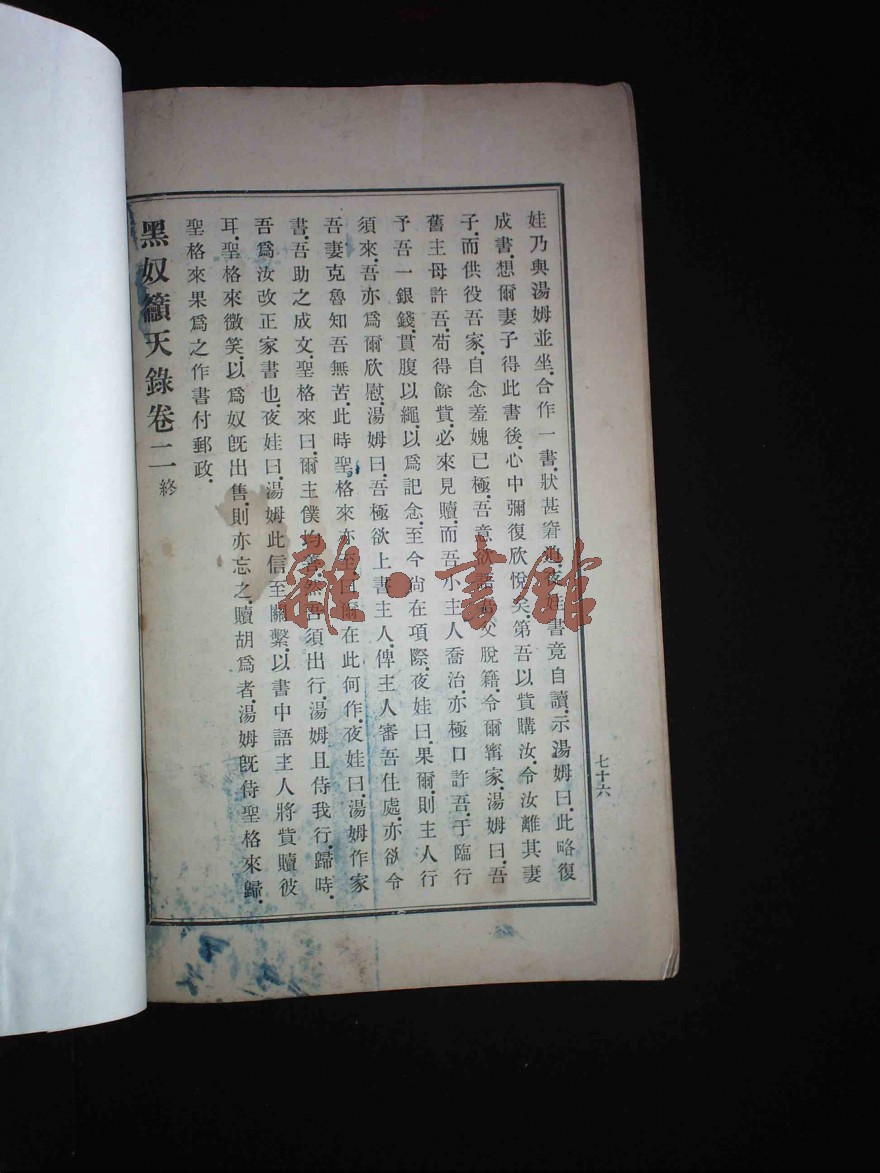 七十六
娃乃與湯姆並坐.合作一書.狀甚窘.夜娃書竟自讀.示湯姆曰.此略復
成書.想爾妻子得此書後.心中彌復欣悅矣.第吾以貲購汝.令汝離其妻
子.而供役吾家.自念羞媿已極.吾意欲語父脫籍.令爾寗家.湯姆曰.吾
舊主母許吾.苟得餘貲.必來見贖.而吾小主人喬治.亦極口許吾.于臨行
予吾一銀錢.貫腹以繩.以爲記念.至今尙在項際.夜娃曰.果爾.則主人行
須來.吾亦爲爾欣慰.湯姆曰.吾極欲上書主人.俾主人審吾住處.亦欲令
吾妻克魯知吾無苦.此時聖格來亦至.曰.爾在此何作.夜娃曰.湯姆作家
書.吾助之成文.聖格來曰.爾主僕均善.然吾須出行.湯姆且侍我行.歸時.
吾爲汝改正家書也.夜娃曰.湯姆此信至關繫.以書中語主人將貲贖彼
耳.聖格來微笑.以爲奴旣出售.則亦忘之.贖胡爲者.湯姆旣侍聖格來歸.
聖格來果爲之作書付郵政.
黑奴籲天錄卷二終
雜·書館